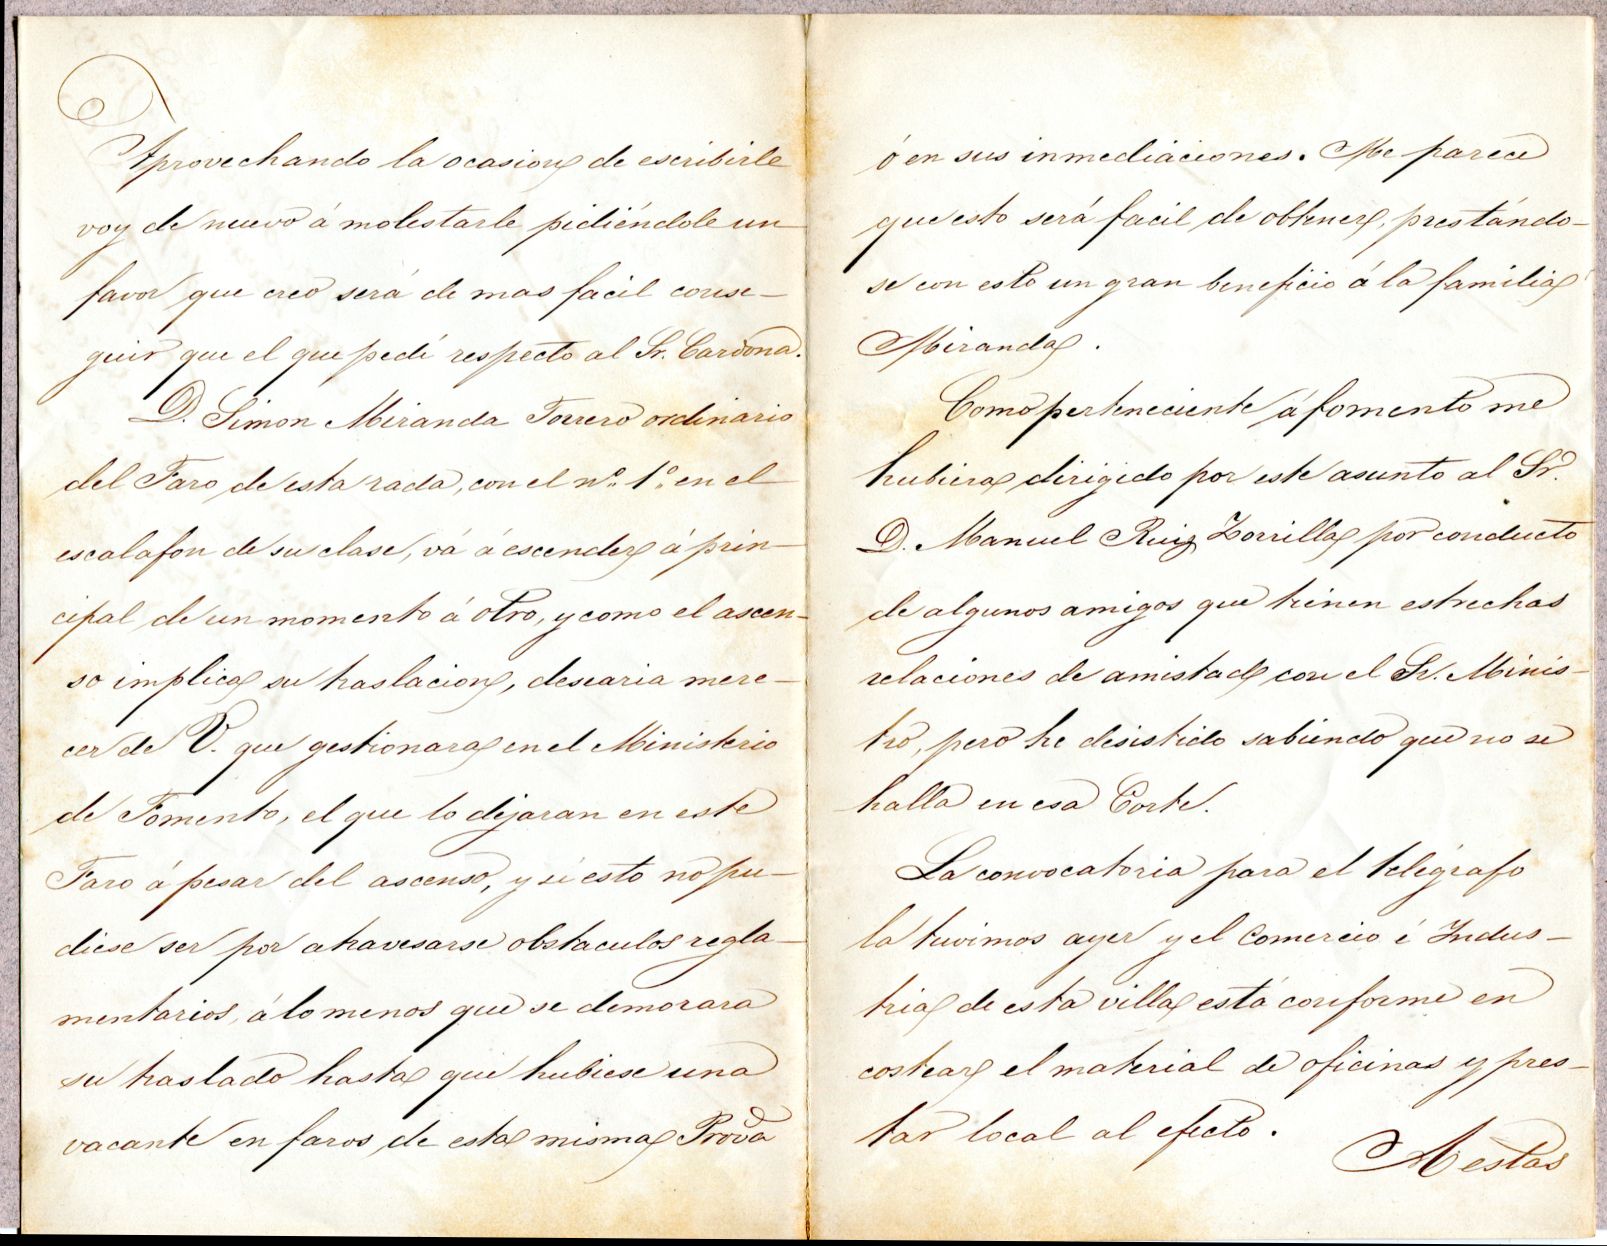 Aprovechando la ocasion de escribirle
voy de nuevo á molestarle pidiéndole un
favor que creo será de mas facil conse-
guir que el que pedí respecto al Sr. Cardona.
D. Simon Miranda Torrero ordinario
del Faro de esta rada, con el nº. 1º. en el
escalafon de su clase, vá á escender á prin-
cipal de un momento á otro, y como el ascen-
so implica su traslacion, desearia mere-
cer de V. que gestionara en el Ministerio
de Fomento, el que lo dejaran en este
Faro á pesar del ascenso, y si esto no pu-
diese ser por atravesarse obstaculos regla-
mentarios, á lo menos que se demorara
su traslado hasta que hubiese una
vacante en faros de esta misma Prova
ó en sus inmediaciones. Me parece
que esto será facil de obtener, prestándo-
se con esto un gran beneficio á la familia
Miranda.
Como perteneciente á fomento me
hubiera dirigido por este asunto al Sr.
D. Manuel Ruiz Zorrilla por conducto
de algunos amigos que tienen estrechas
relaciones de amistad con el Sr. Minis-
tro, pero he desistido sabiendo que no se
halla en esa Corte.
La convocatoria para el telégrafo
la tuvimos ayer y el Comercio é Indus-
tria de esta villa está conforme en
costear el material de oficinas y pres-
tar local al efecto.
A estas